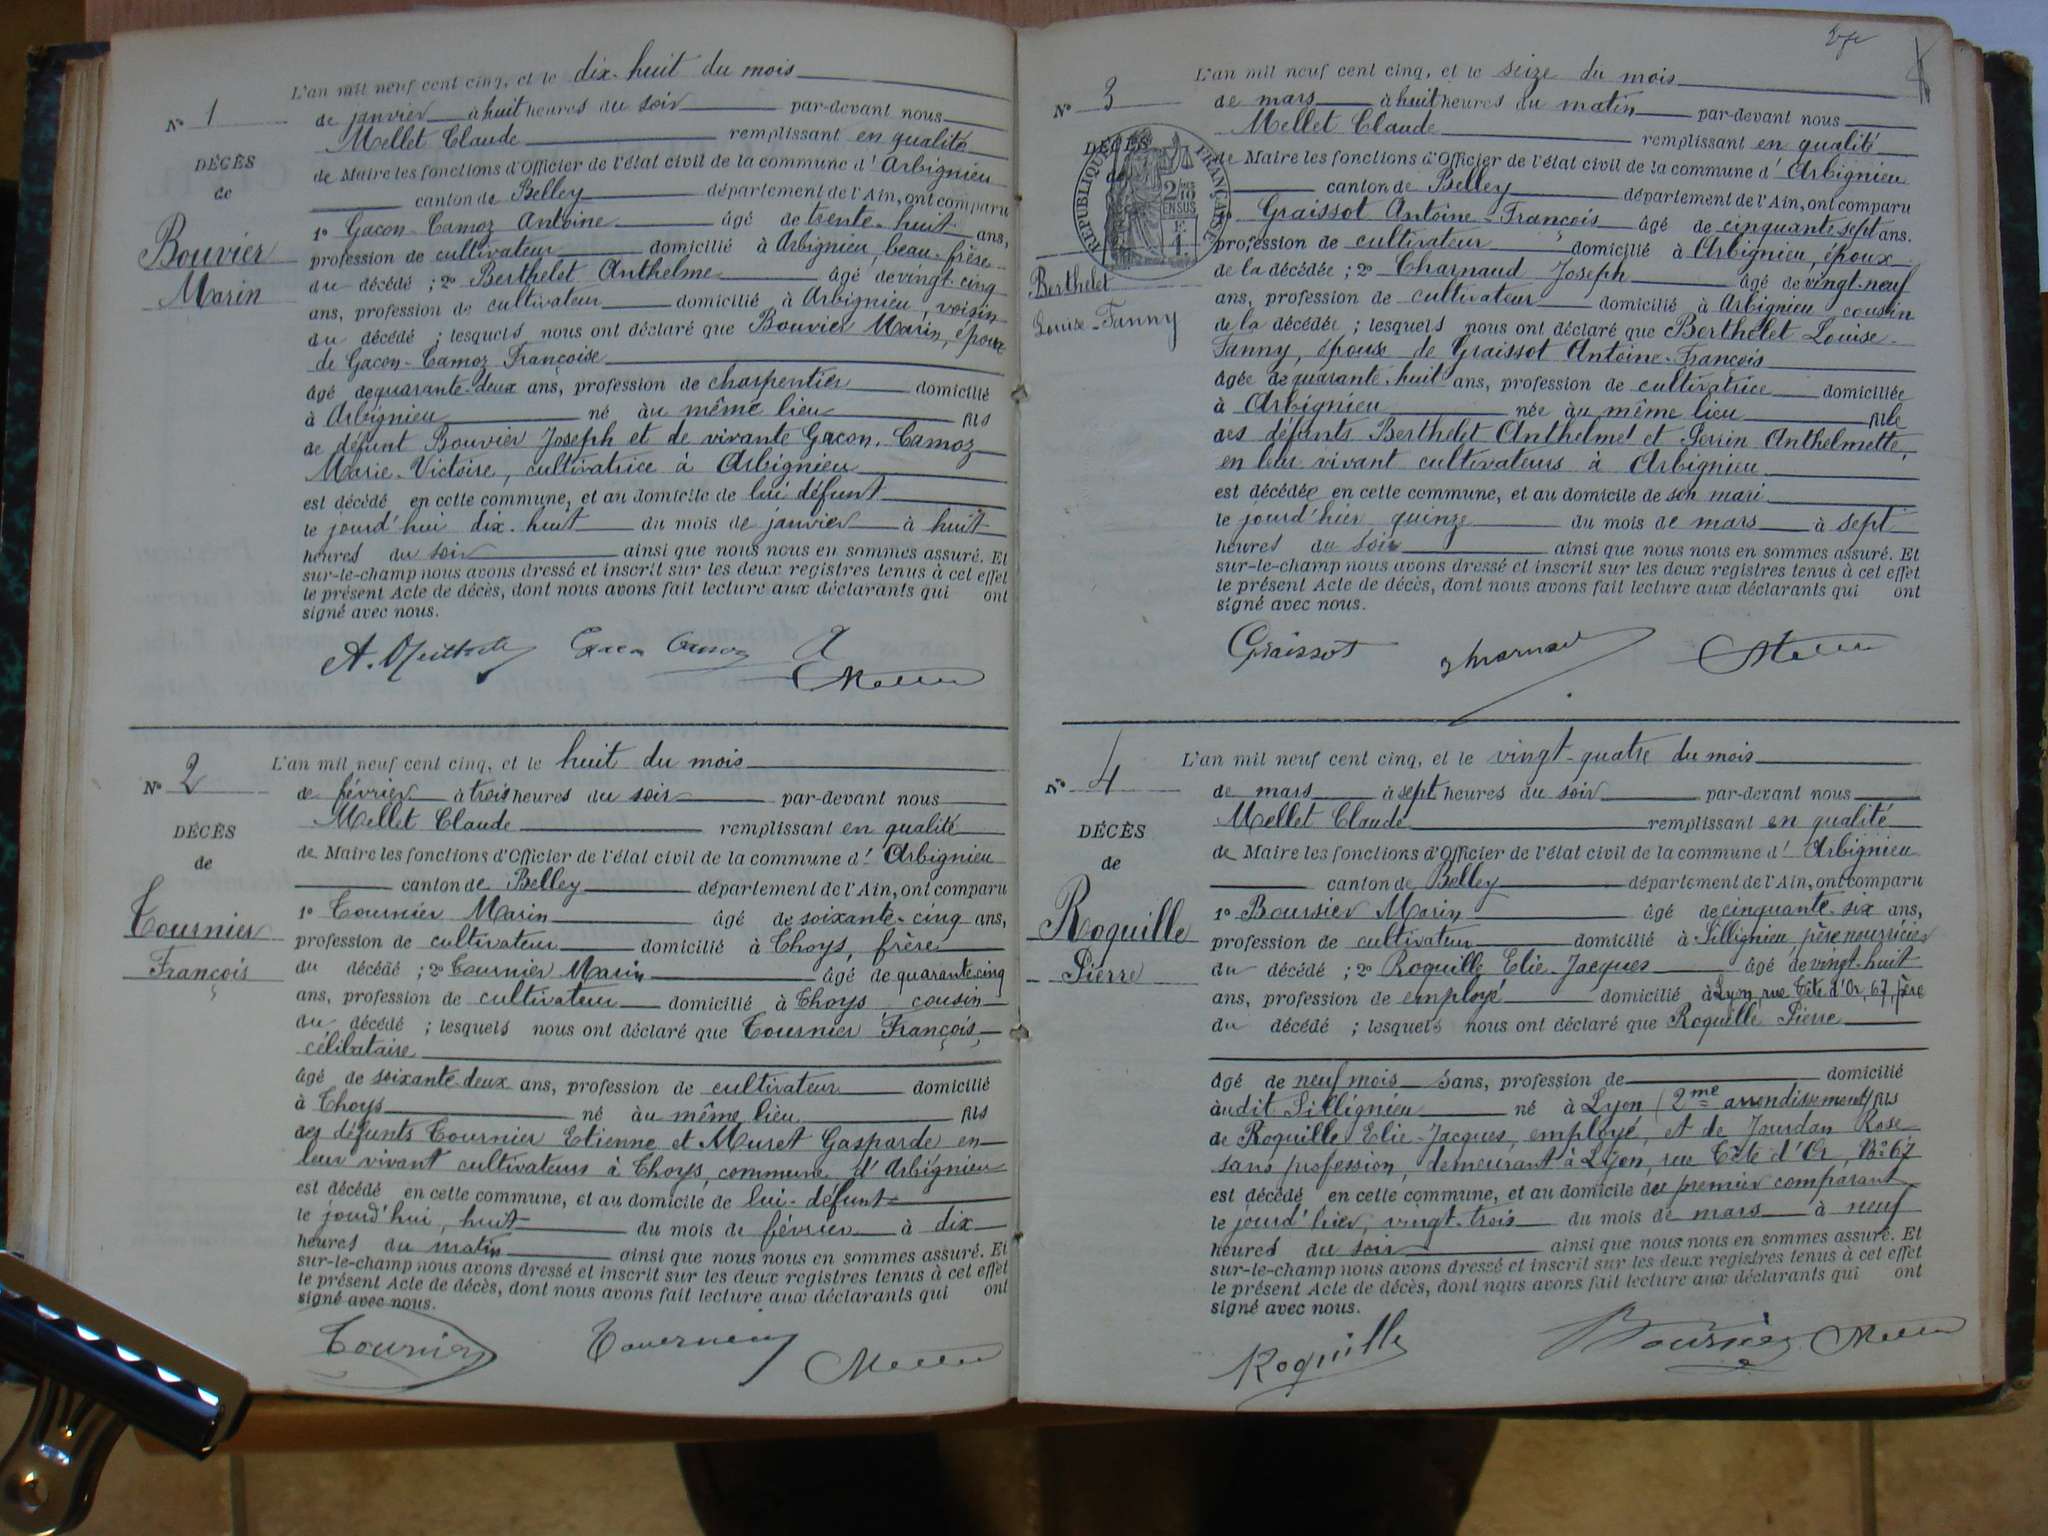 L'an mil neuf cent cinq, et le dix-huit du mois
N° 1
de janvier à huit heures du soir par-devant nous
Mellet Claude remplissant en qualité
DÉCÈS
de Maire les fonctions d'Officier de l'état civil de la commune d'Arbignieu
de
canton de Belley département de l'Ain, ont comparu
1° Gacon-Camoz Antoine âgé de trente-huit ans,
Bouvier
profession de cultivateur domicilié à Arbignieu, beau-frère
Marin
du décédé ; 2° Berthelet Anthelme âgé de vingt-cinq
ans, profession de cultivateur domicilié à Arbignieu, voisin
du décédé ; lesquels nous ont déclaré que Bouvier Marin, époux
de Gacon-Camoz Françoise
âgé de quarante-deux ans, profession de charpentier domicilié
à Arbignieu né au même lieu fils
de défunt Bouvier Joseph et de vivante Gacon-Camoz
Marie-Victoire, cultivatrice à Arbignieu
est décédé en cette commune, et au domicile de lui défunt
le jourd'hui dix-huit du mois de janvier à huit
heures du soir ainsi que nous nous en sommes assuré. Et
sur-le-champ nous avons dressé et inscrit sur les deux registres tenus à cet effet
le présent Acte de décès, dont nous avons fait lecture aux déclarants qui ont
signé avec nous.
Gacon Camoz A
Mellet
L'an mil neuf cent cinq, et le huit du mois
N° 2
de février à trois heures du soir par-devant nous
Mellet Claude remplissant en qualité
DÉCÈS
de Maire les fonctions d'Officier de l'état civil de la commune d'Arbignieu
de
canton de Belley département de l'Ain, ont comparu
1° Tournier Marin âgé de soixante-cinq ans,
Tournier
profession de cultivateur domicilié à Thoys, frère
François
du décédé ; 2° Tournier Marin âgé de quarante-cinq
ans, profession de cultivateur domicilié à Thoys cousin
du décédé ; lesquels nous ont déclaré que Tournier François,
célibataire
âgé de soixante-deux ans, profession de cultivateur domicilié
à Thoys né au même lieu fils
des défunts Tournier Etienne et Muret Gasparde en
leur vivant cultivateurs à Thoys, commune d'Arbignieu
est décédé en cette commune, et au domicile de lui-défunt
le jourd'hui, huit du mois de février à dix
heures du matin ainsi que nous nous en sommes assuré. Et
sur-le-champ nous avons dressé et inscrit sur les deux registres tenus à cet effet
le présent Acte de décès, dont nous avons fait lecture aux déclarants qui ont
signé avec nous.
Tournier Tournier Mellet
L'an mil neuf cent cinq, et le seize du mois
N° 3
de mars à huit heures du matin par-devant nous
Mellet Claude remplissant en qualité
DÉCÈS
de Maire les fonctions d'Officier de l'état civil de la commune d'Arbignieu
de
RÉPUBLIQUE FRANÇAISE
2/10 EN SUS
canton de Belley département de l'Ain, ont comparu
1° Graissot Antoine-François âgé de cinquante-sept ans.
profession de cultivateur domicilié à Arbignieu, époux
Berthelet
de la décédée ; 2° Charnaud Joseph âgé de vingt-neuf
ans, profession de cultivateur domicilié à Arbignieu cousin
Louise-Fanny
de la décédée ; lesquels nous ont déclaré que Berthelet Louise-
Fanny, épouse de Graissot Antoine-François
âgée de quarante-huit ans, profession de cultivatrice domiciliée
à Arbignieu née au même lieu fille
des défunts Berthelet Anthelme et Perrin Anthelmette,
en leur vivant cultivateurs à Arbignieu
est décédée en cette commune, et au domicile de son mari
le jourd'hier quinze du mois de mars à sept
heures du soir ainsi que nous nous en sommes assuré. Et
sur-le-champ nous avons dressé et inscrit sur les deux registres tenus à cet effet
le présent Acte de décès, dont nous avons fait lecture aux déclarants qui ont
signé avec nous.
Graissot Mellet
L'an mil neuf cent cinq, et le vingt-quatre du mois
N° 4
de mars à sept heures du soir par-devant nous
Mellet Claude remplissant en qualité
DÉCÈS
de Maire les fonctions d'Officier de l'état civil de la commune d'Arbignieu
de
canton de Belley département de l'Ain, ont comparu
1° Boursier Marin âgé de cinquante-six ans,
Roquille
profession de cultivateur domicilié à Sillignieu, père nourricier
Pierre
du décédé ; 2° Roquille Elie-Jacques âgé de vingt-huit
ans, profession de employé domicilié à Lyon, rue Tête d'Or, 67, père
du décédé ; lesquels nous ont déclaré que Roquille Pierre
âgé de neuf mois sans, profession de domicilié
audit Sillignieu né à Lyon (2me arrondissement) fils
de Roquille Elie-Jacques, employé, et de Jourdan Rose
sans profession, demeurant à Lyon, rue Tête d'Or, N° 67
est décédé en cette commune, et au domicile du premier comparant
le jourd'hier, vingt-trois du mois de mars à neuf
heures du soir ainsi que nous nous en sommes assuré. Et
sur-le-champ nous avons dressé et inscrit sur les deux registres tenus à cet effet
le présent Acte de décès, dont nous avons fait lecture aux déclarants qui ont
signé avec nous.
Roquille Boursier Mellet